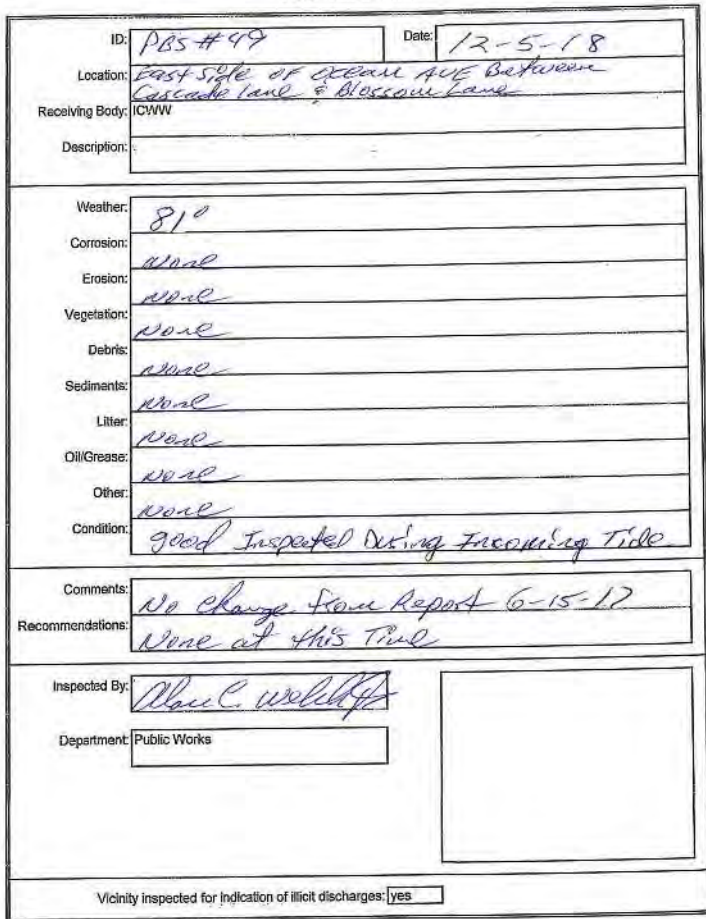 ID: PBS #49 Date: 12-5-18
Location: East Side of Ocean AVE Between
Cascade Lane & Blossom Lane
Receiving Body: ICWW
Description:
Weather: 81°
Corrosion: None
Erosion: None
Vegetation: None
Debris: None
Sediments: None
Litter: None
Oil/Grease: None
Other: None
Condition: good Inspected During Incoming Tide
Comments: No Change from Report 6-15-17
Recommendations: None at this Time
Inspected By: Alan C. Welch
Department: Public Works
Vicinity inspected for indication of illicit discharges: yes